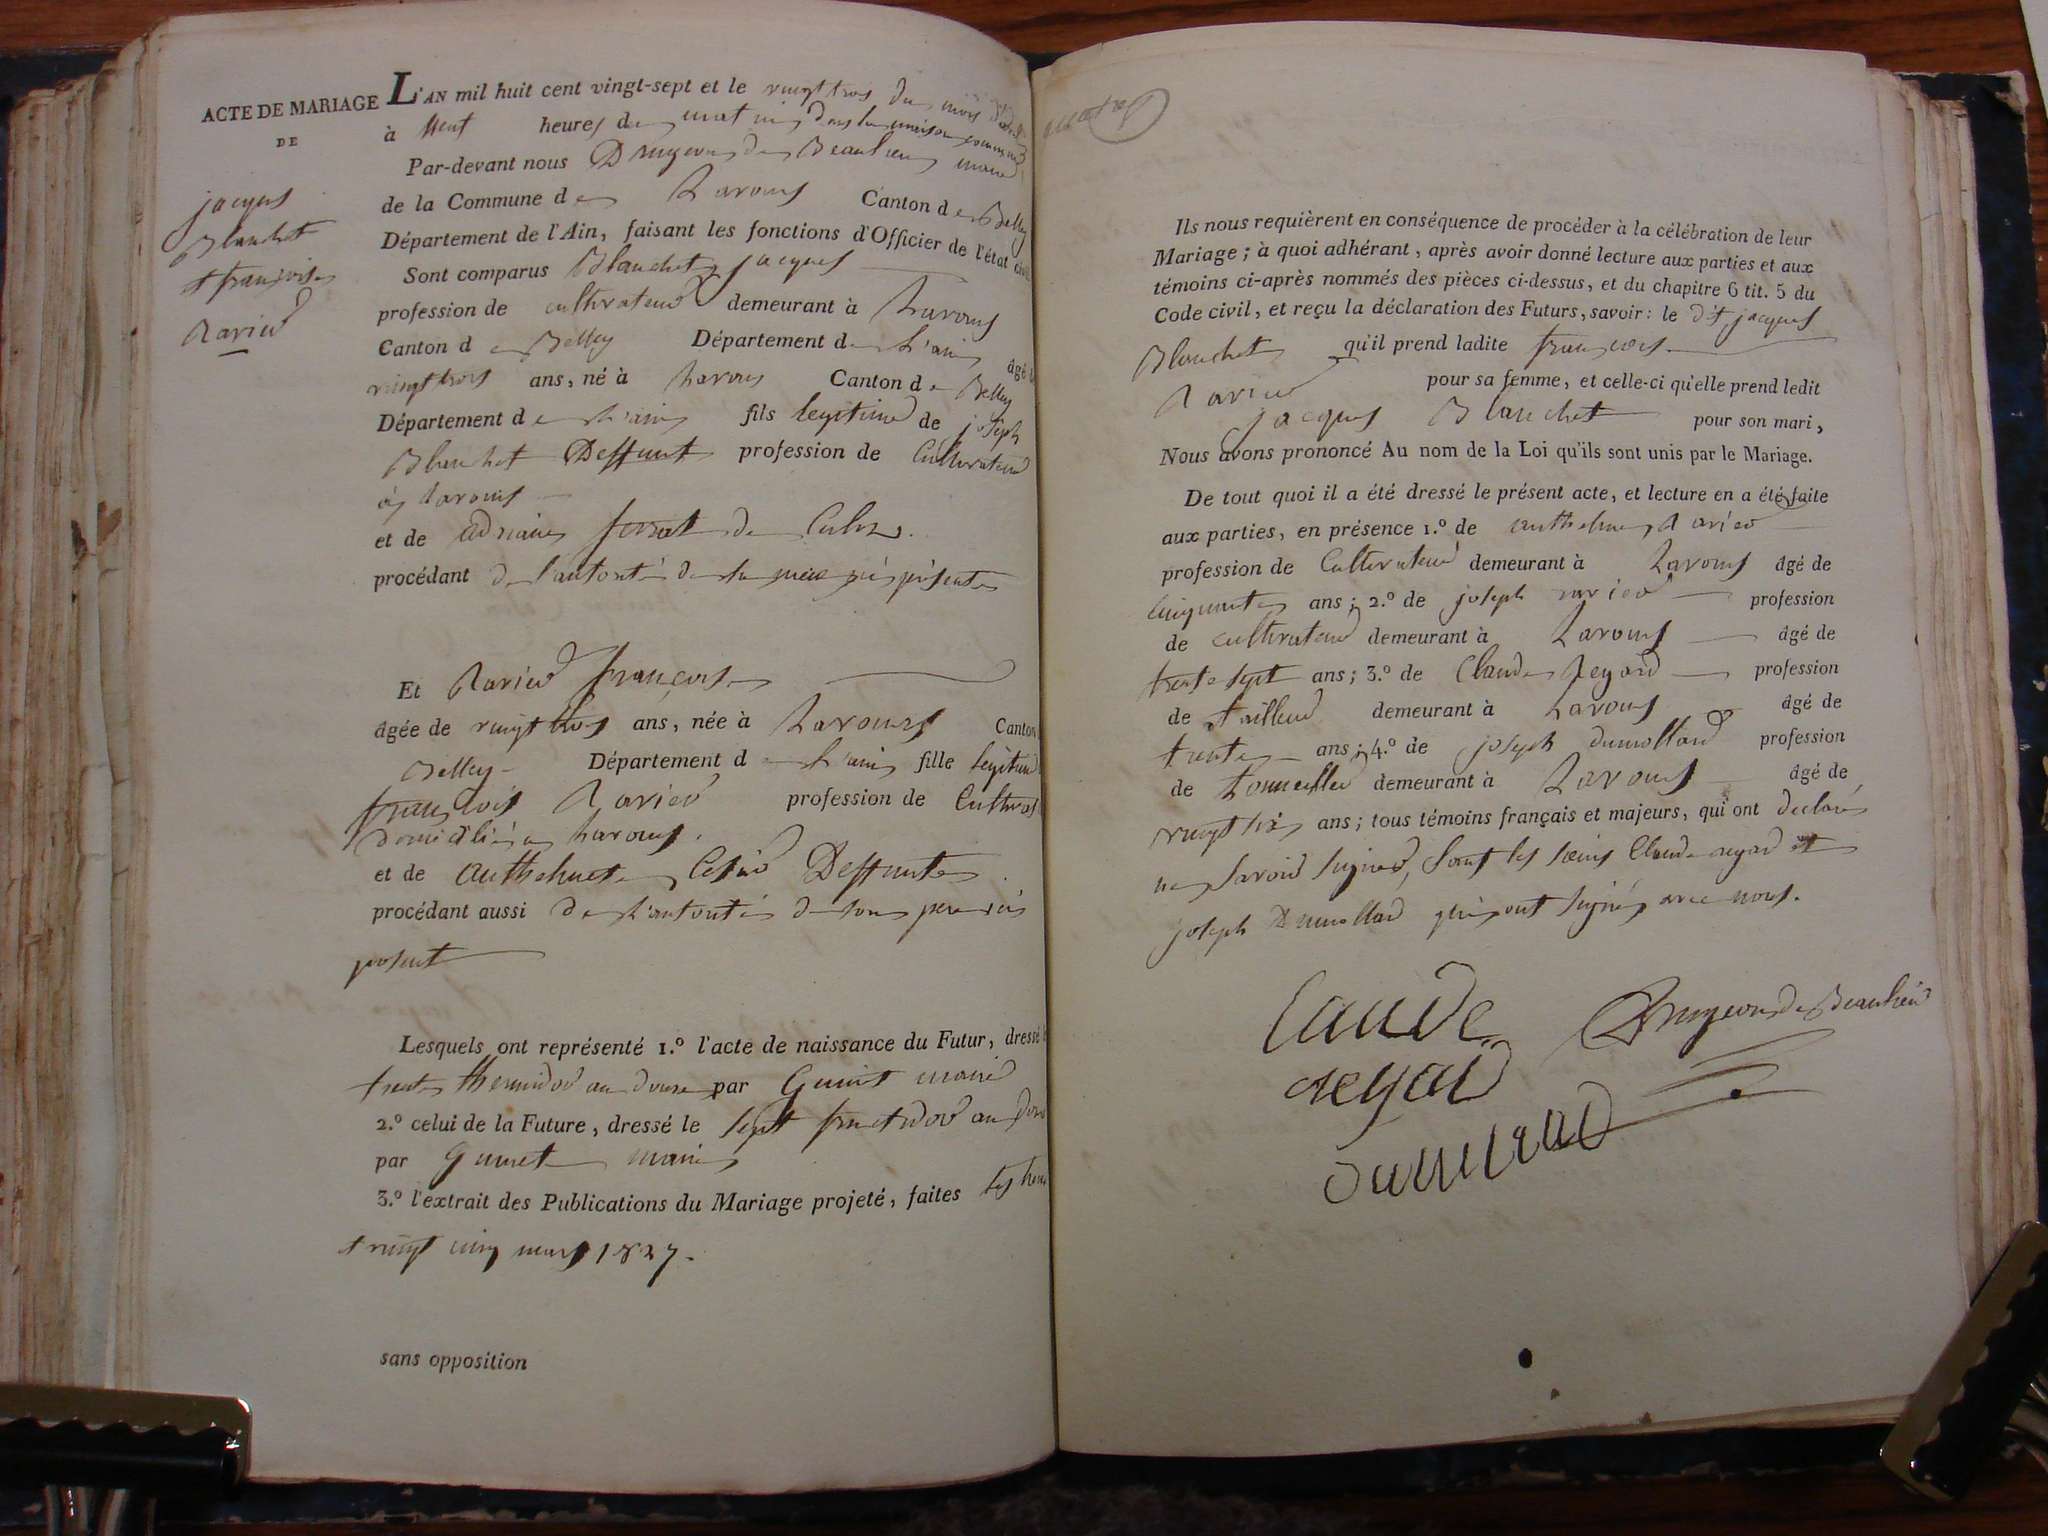 ACTE DE MARIAGE
DE
jacques
Blanchet
et françoise
Ravier
L'AN mil huit cent vingt-sept et le vingt trois du mois d'avril
à neuf heures du matin dans la maison commune
Par-devant nous Drugeon de Beaulieu maire
de la Commune de Lavours Canton de Belley
Département de l'Ain, faisant les fonctions d'Officier de l'état civil
Sont comparus Blanchet jacques
profession de cultivateur demeurant à Lavours
Canton de Belley Département de L'ain âgé
vingt trois ans, né à Lavours Canton de Belley
Département de L'ain fils legitime de joseph
Blanchet Deffunt profession de Cultivateur
à Lavours
et de adriane ferrat de Culoz.
procédant de l'autorité de sa mère ici présente
Et Ravier françoise
âgée de vingt trois ans, née à Lavours Canton
Belley Département de L'ain fille legitime
françois Ravier profession de Cultivat
domicilié à Lavours.
et de Anthelmette Deffunte
procédant aussi de L'autorité de son pere ici
présent
Lesquels ont représenté 1.º l'acte de naissance du Futur, dressé
trente thermidor an douze par Guinet maire
2.º celui de la Future, dressé le sept fructidor an douze
par Guinet maire
3.º l'extrait des Publications du Mariage projeté, faites les
et vingt cinq mars 1827.
sans opposition
Ils nous requièrent en conséquence de procéder à la célébration de leur
Mariage ; à quoi adhérant, après avoir donné lecture aux parties et aux
témoins ci-après nommés des pièces ci-dessus, et du chapitre 6 tit. 5 du
Code civil, et reçu la déclaration des Futurs, savoir : le dit jacques
Blanchet qu'il prend ladite françoise
Ravier pour sa femme, et celle-ci qu'elle prend ledit
jacques Blanchet pour son mari,
Nous avons prononcé Au nom de la Loi qu'ils sont unis par le Mariage.
De tout quoi il a été dressé le présent acte, et lecture en a été faite
aux parties, en présence 1.º de anthelme Ravier
profession de Cultivateur demeurant à Lavours âgé de
cinquante ans ; 2.º de joseph ravier profession
de cultivateur demeurant à Lavours âgé de
trente sept ans ; 3.º de Claude Regard profession
de tailleur demeurant à Lavours âgé de
trente ans ; 4.º de joseph dumollard profession
de tonnellier demeurant à Lavours âgé de
vingt six ans ; tous témoins français et majeurs, qui ont declaré
ne savoir signer, sauf les sieurs Claude regard et
joseph Dumollard qui ont signés avec nous.
Claude Drugeon de Beaulieu
regard
dumolard